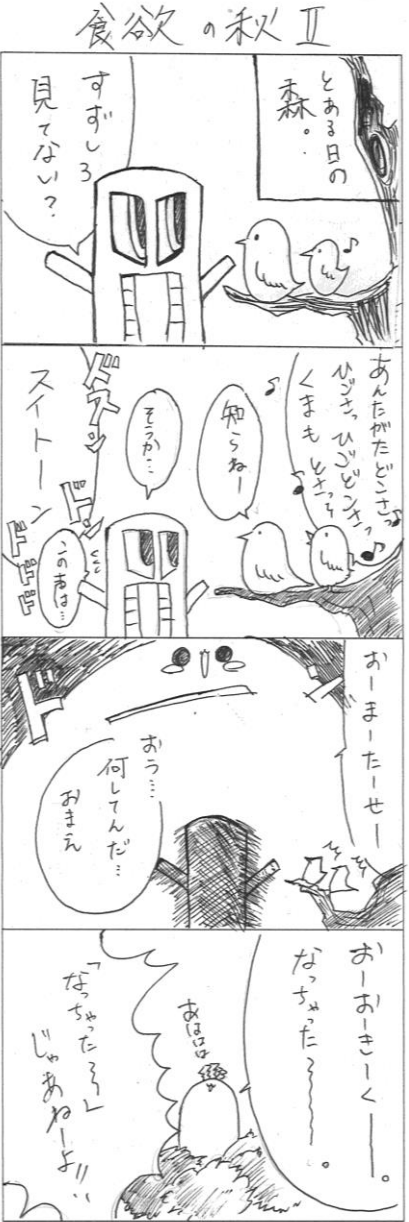 食欲の秋Ⅱ
とある日の
森。
すずしろ
見てない？
あんたがたどこさっ
ひごさっ ひごどこさっ
くまも とさっ
知らねー
そうか…
ドスン
スイトーン
ドドドド
この音は…
おーまーたーせー
ド
おう…
何してんだ…
おまえ
おーおーきーくー
なっちゃった〜〜〜。
あははは
「なっちゃった〜」
じゃあねーよ!!